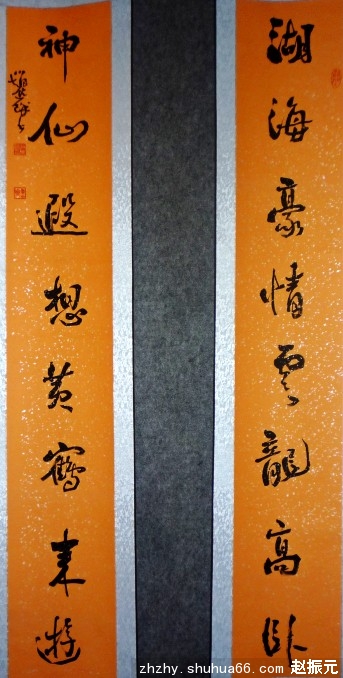 湖海豪情云龍高臥
神仙遐想黄鶴来遊
zhzhy.shuhua66.com 赵振元